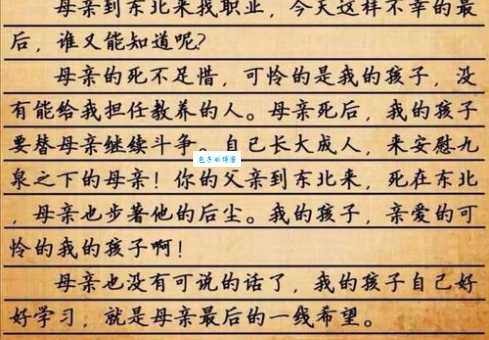 母亲到东北来找职业，今天这样不幸的最
后，谁又能知道呢？
母亲的死不足惜，可怜的是我的孩子，没
有能给我担任教养的人。母亲死后，我的孩子
要替母亲继续斗争。自己长大成人，来安慰九
泉之下的母亲！你的父亲到东北来，死在东北
，母亲也步著他的后尘。我的孩子，亲爱的可
怜的我的孩子啊！
母亲也没有可说的话了，我的孩子自己好
好学习，就是母亲最后的一线希望。